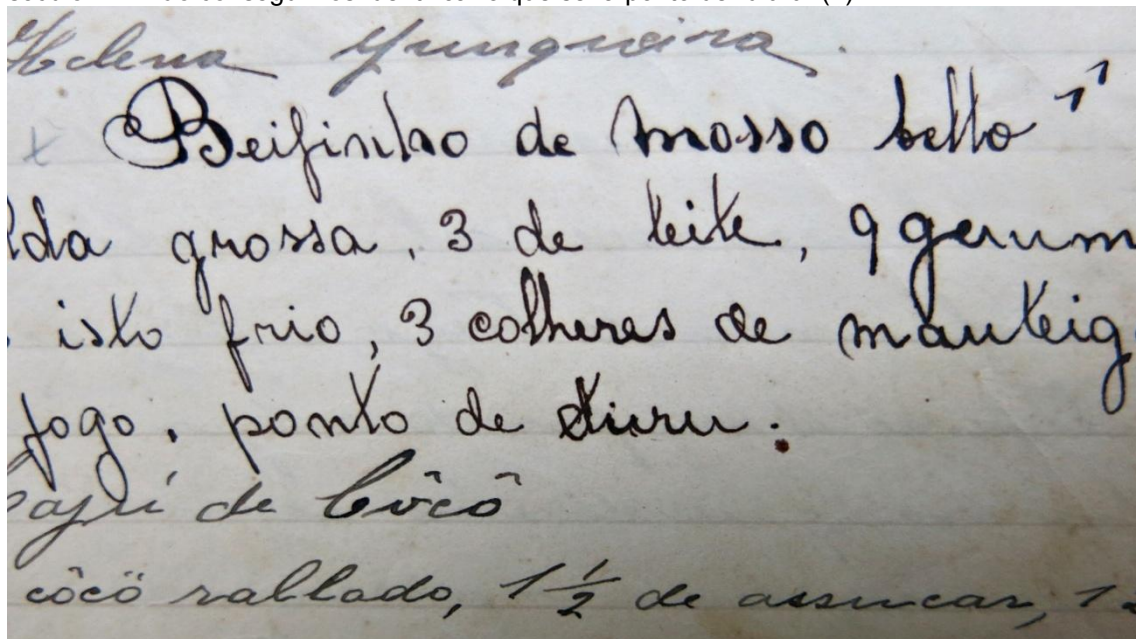 Helena Junqueira.
Beijinho de mosso bello 1
lda grossa, 3 de leite, 9 gerum
isto frio, 3 colheres de manteig
fogo, ponto de
Cajú de Côcô
côcô rallado, 1 1/2 de assucar, 1